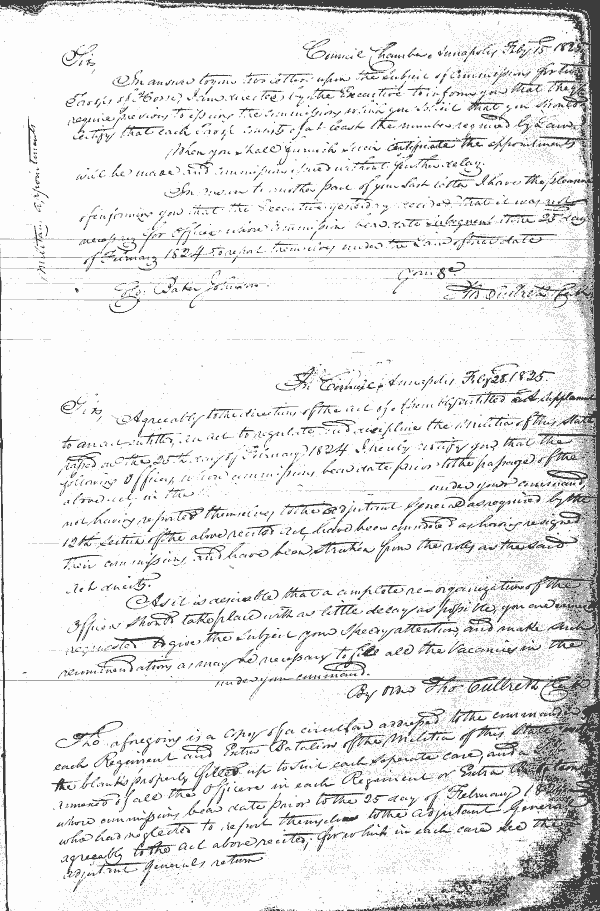 Council Chamber Annapolis Feby 15 1825
Sir,
In answer to your letter upon the subject of Commissions for two
Troops of Horse, I am directed by the Executive to inform you that they
require previous to issuing the commissions which you solicit that you should
certify that each Troop consists of at least the number required by Law.
When you shall furnish such certificate the appointments
will be made and commissions issued without further delay.
In answer to another part of your last letter I have the pleasure
of informing you that the Executive yesterday decided that it was not
necessary for officers whose commission bear date subsequent to the 25 day
of February 1824 to report themselves under the Law of that date
Yours &c
Baker Johnson
Th Culbreth Clk
Military Appointments
In Council, Annapolis Feby 28 1825
Sir, Agreeably to the directions of the act of assembly entitled a Supplement
to an act entitled, an act to regulate and discipline the Militia of this State
passed on the 25th day of February 1824 I hereby notify you that the
following officers, whose commissions bear date prior to the passage of the
above act, in the under your command,
not having reported themselves to the adjutant General as required by the
12th Section of the above recited Act, have been considered as having resigned
their commissions, and have been stricken from the roles as the said
Act directs.
As it is desirable that a complete re-organization of the
Officers should take place with as little delay as possible, you are
requested to give the subject your speedy attention, and make such
recommendations as may be necessary to fill all the Vacancies in the
under your command.
By order Tho Culbreth Clk
The aforegoing is a copy of a circular addressed to the command
each Regiment and Extra Batalion of the Militia of this State,
the blanks properly filled up to suit each seperate case, and a
of all the Officers in each Regiment or Extra Batalion
whose commissions bear date prior to the 25 day of February 1824
who had neglected to report themselves to the adjutant General
agreeably to the act above recited, for which in each case see the
adjutant Generals return